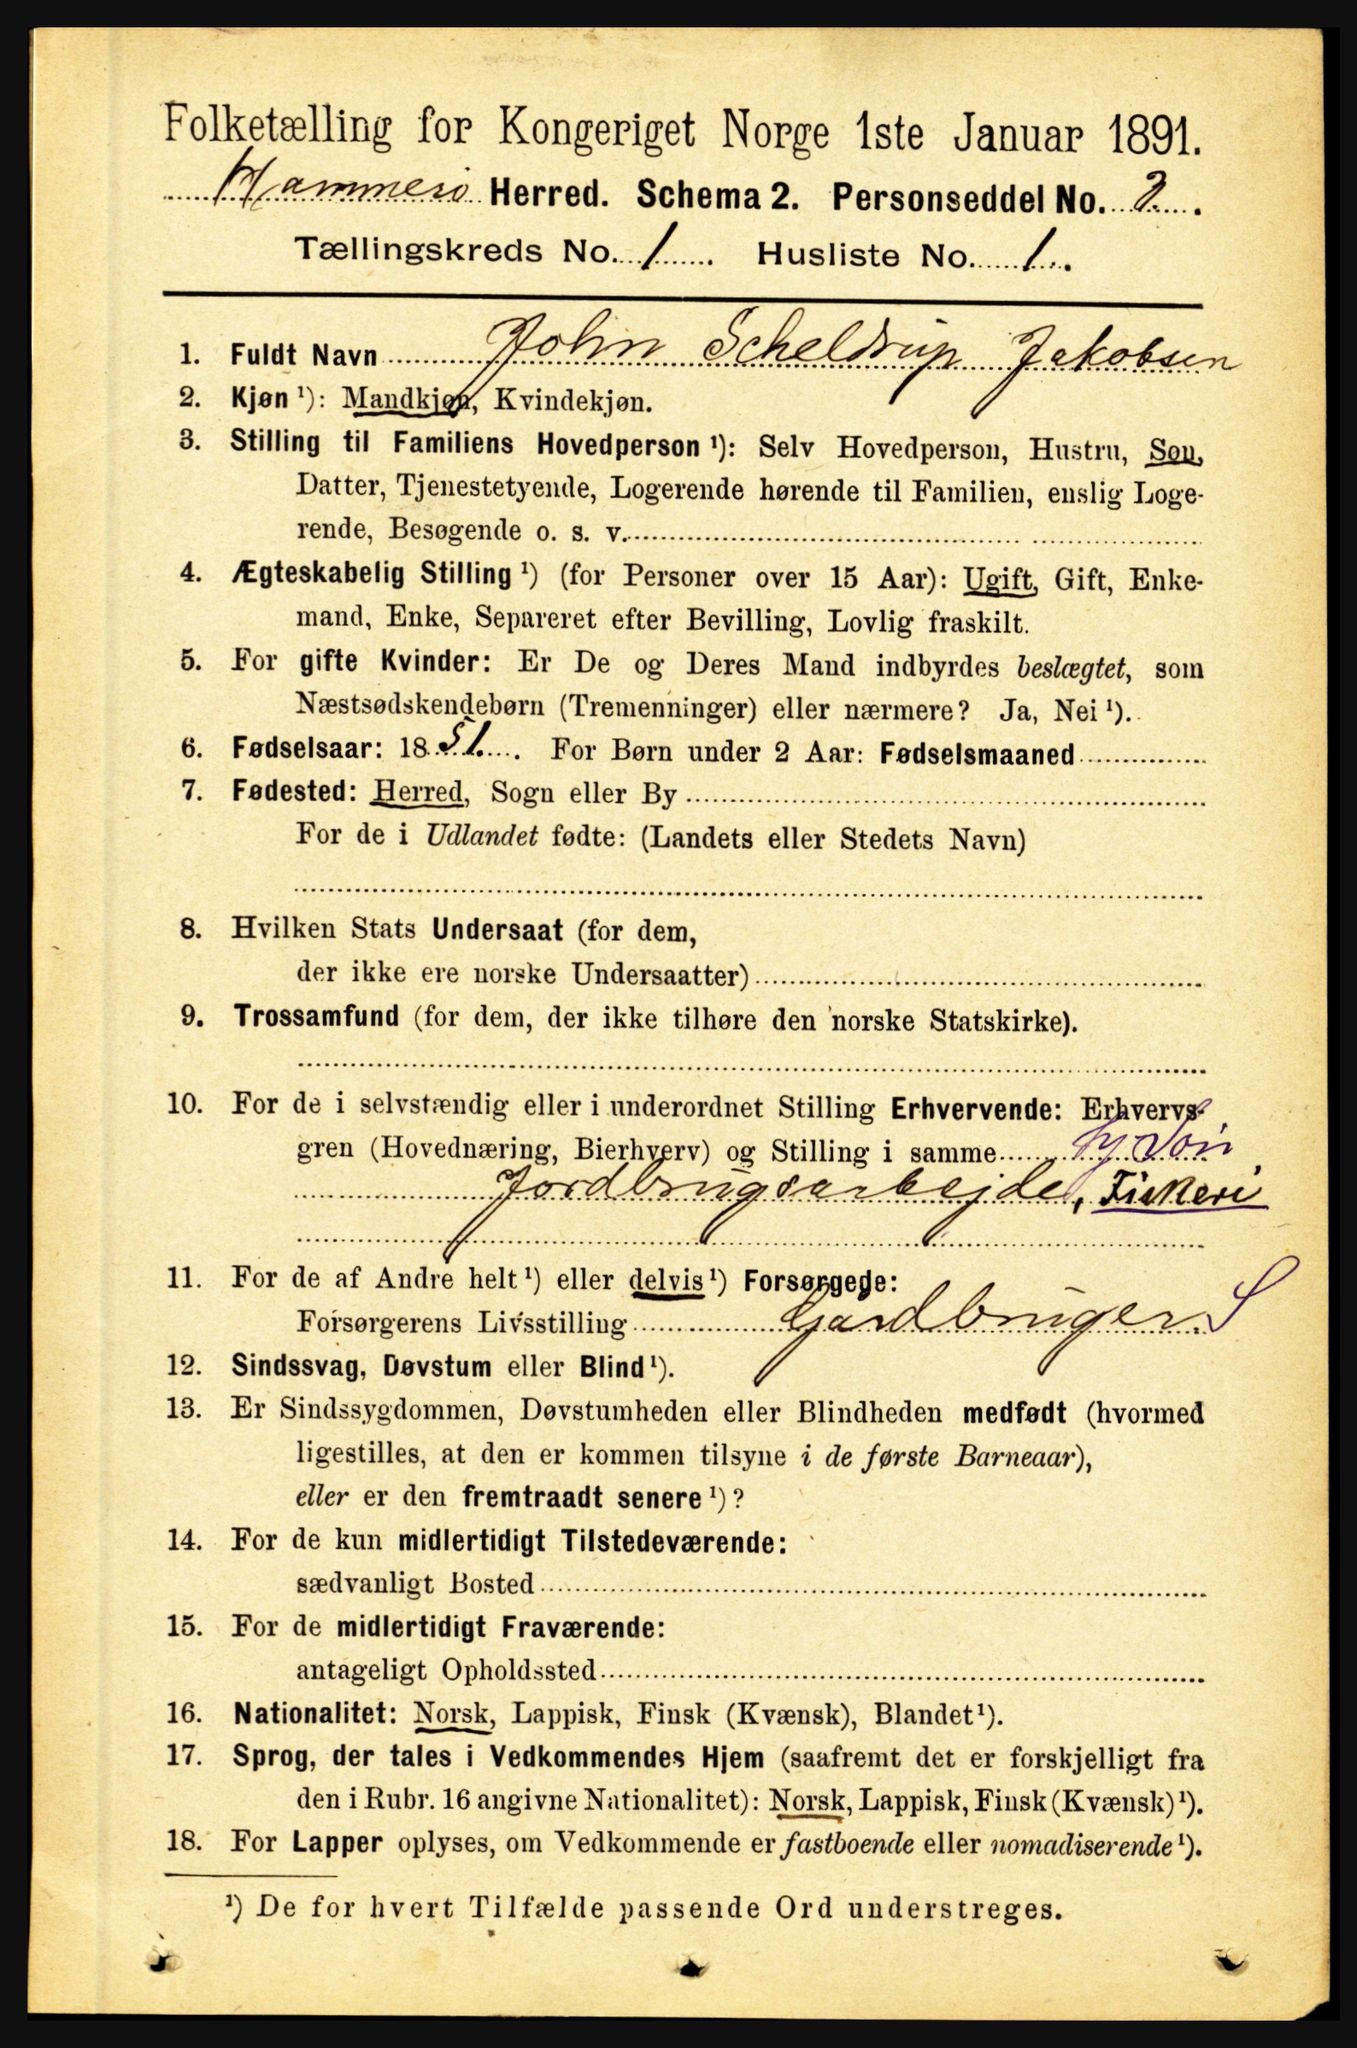 Folketælling for Kongeriget Norge 1ste Januar 1891.
Hammerö Herred. Schema 2. Personseddel No. 2.
Tællingskreds No. 1. Husliste No. 1.
1. Fuldt Navn John Scheldrup Jakobsen
2. Kjøn ¹): Mandkjøn, Kvindekjøn.
3. Stilling til Familiens Hovedperson ¹): Selv Hovedperson, Hustru, Søn,
Datter, Tjenestetyende, Logerende hørende til Familien, enslig Loge-
rende, Besøgende o. s. v.
4. Ægteskabelig Stilling ¹) (for Personer over 15 Aar): Ugift, Gift, Enke-
mand, Enke, Separeret efter Bevilling, Lovlig fraskilt.
5. For gifte Kvinder: Er De og Deres Mand indbyrdes beslægtet, som
Næstsødskendebørn (Tremenninger) eller nærmere? Ja, Nei ¹).
6. Fødselsaar: 1851. For Børn under 2 Aar: Fødselsmaaned
7. Fødested: Herred, Sogn eller By
For de i Udlandet fødte: (Landets eller Stedets Navn)
8. Hvilken Stats Undersaat (for dem,
der ikke ere norske Undersaatter)
9. Trossamfund (for dem, der ikke tilhøre den norske Statskirke).
10. For de i selvstændig eller i underordnet Stilling Erhvervende: Erhvervs-
gren (Hovednæring, Bierhverv) og Stilling i samme
Jordbrugsarbejde, Fiskeri
11. For de af Andre helt ¹) eller delvis ¹) Forsørgede:
Forsørgerens Livsstilling Gårdbruger. S
12. Sindssvag, Døvstum eller Blind ¹).
13. Er Sindssygdommen, Døvstumheden eller Blindheden medfødt (hvormed
ligestilles, at den er kommen tilsyne i de første Barneaar),
eller er den fremtraadt senere ¹)?
14. For de kun midlertidigt Tilstedeværende:
sædvanligt Bosted
15. For de midlertidigt Fraværende:
antageligt Opholdssted
16. Nationalitet: Norsk, Lappisk, Finsk (Kvænsk), Blandet ¹).
17. Sprog, der tales i Vedkommendes Hjem (saafremt det er forskjelligt fra
den i Rubr. 16 angivne Nationalitet): Norsk, Lappisk, Finsk (Kvænsk) ¹).
18. For Lapper oplyses, om Vedkommende er fastboende eller nomadiserende ¹).
¹) De for hvert Tilfælde passende Ord understreges.